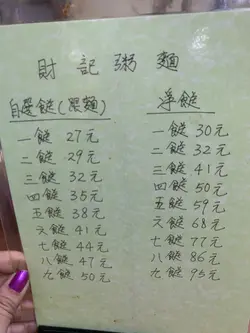 財記粥麵
自選餸(跟麵)
一餸 27元
二餸 29元
三餸 32元
四餸 35元
五餸 38元
六餸 41元
七餸 44元
八餸 47元
九餸 50元
淨餸
一餸 30元
二餸 32元
三餸 41元
四餸 50元
五餸 59元
六餸 68元
七餸 77元
八餸 86元
九餸 95元